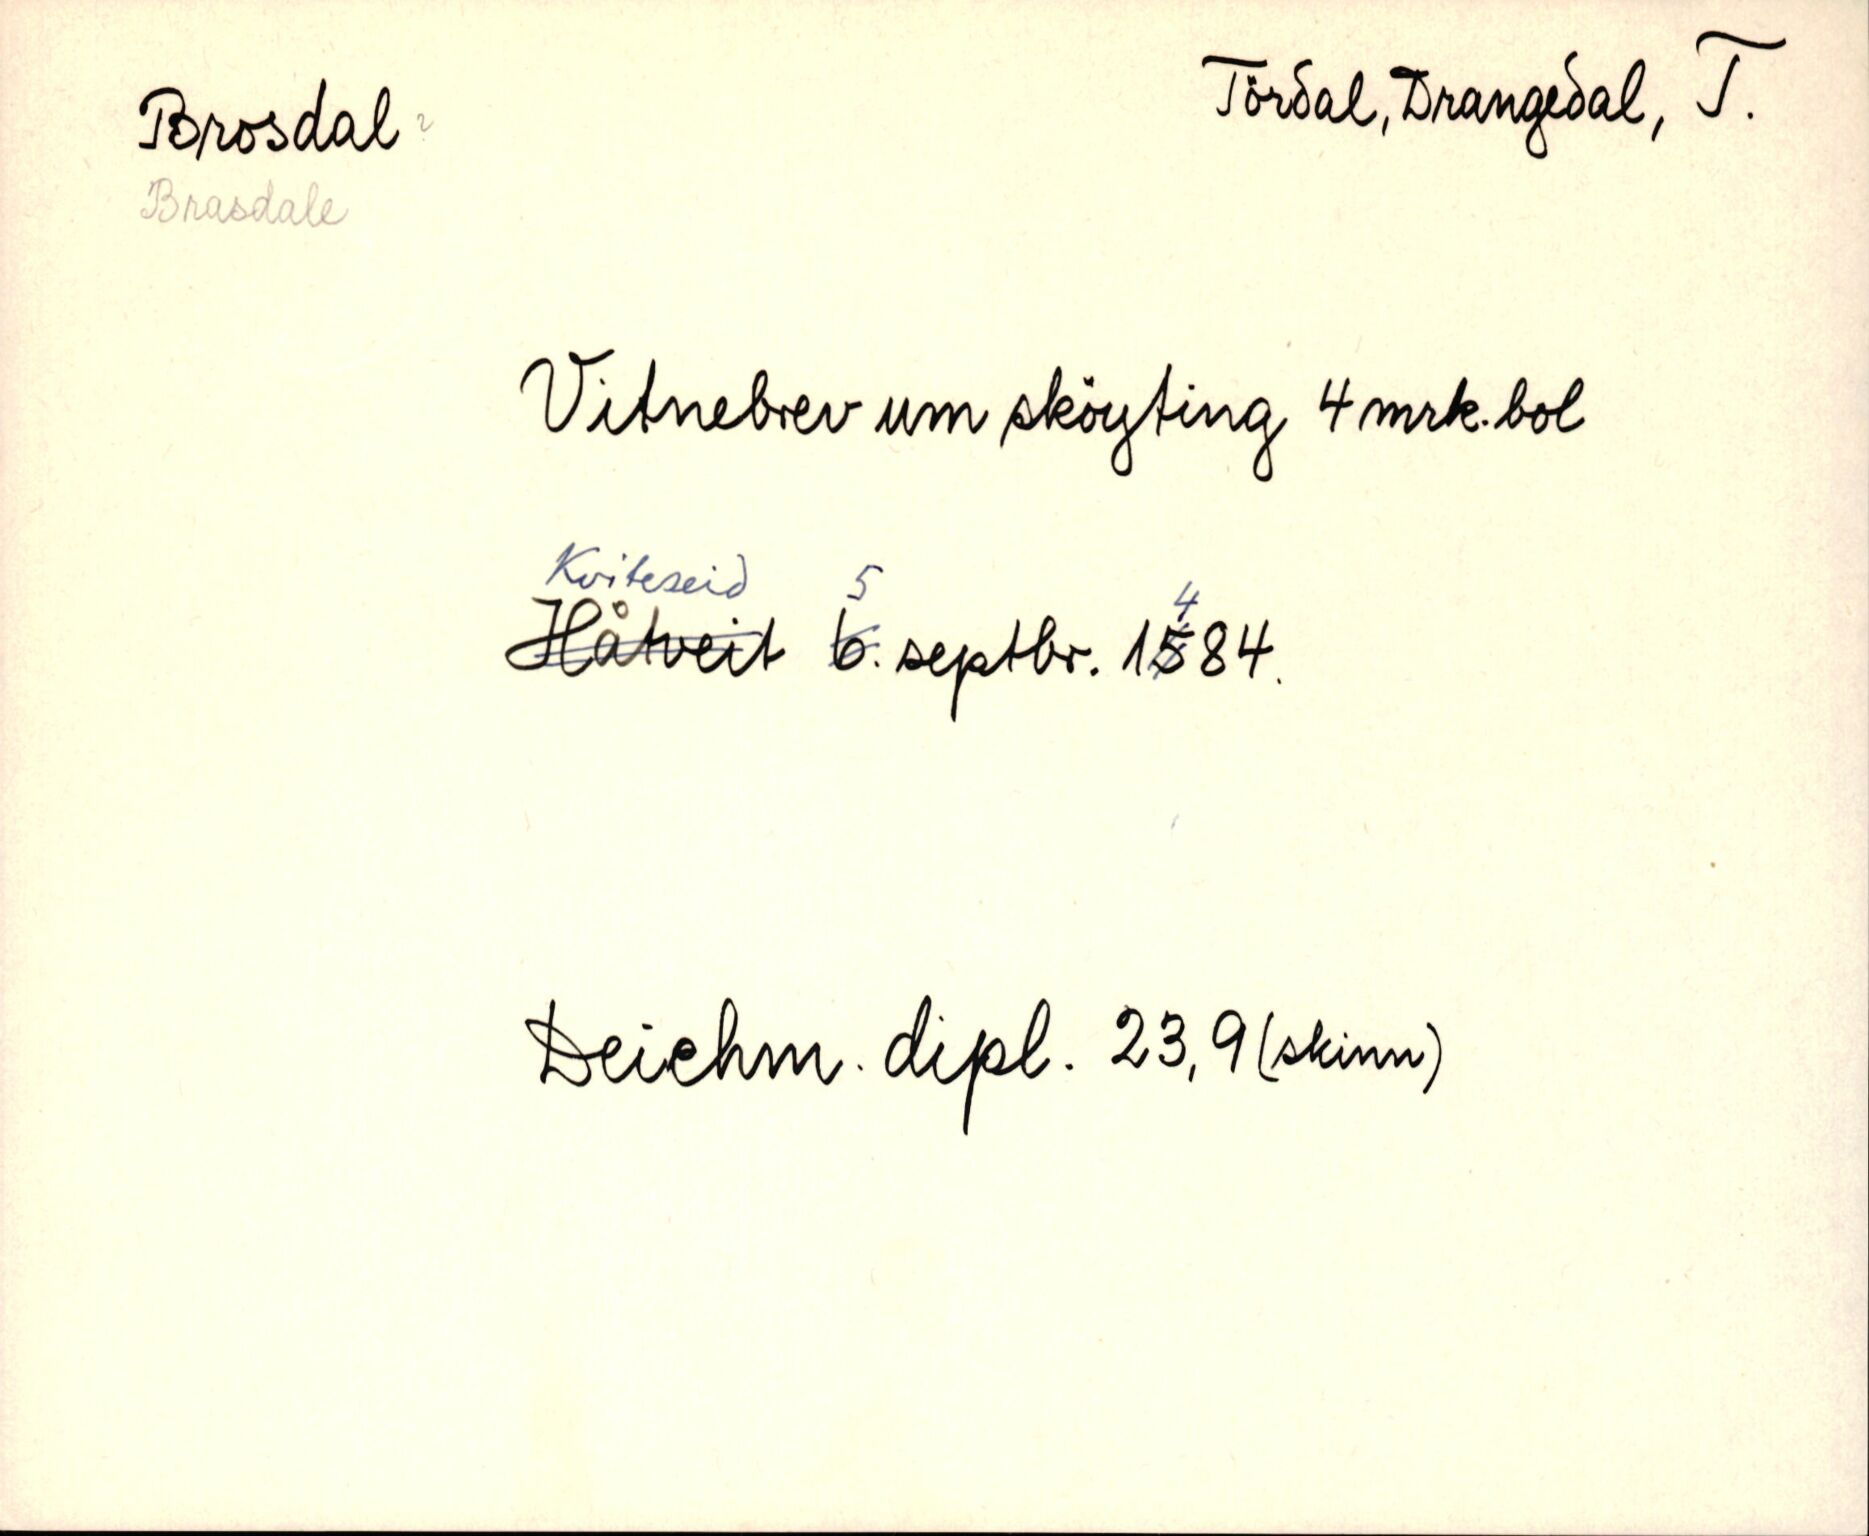 Brosdal ?
Tördal, Drangedal, T.
Brasdale
Vitnebrev um sköyting 4 mrk. bol
Kviteseid 5 4
Håtveit 6. septbr. 1584.
Deichm. dipl. 23,9 (skinn)